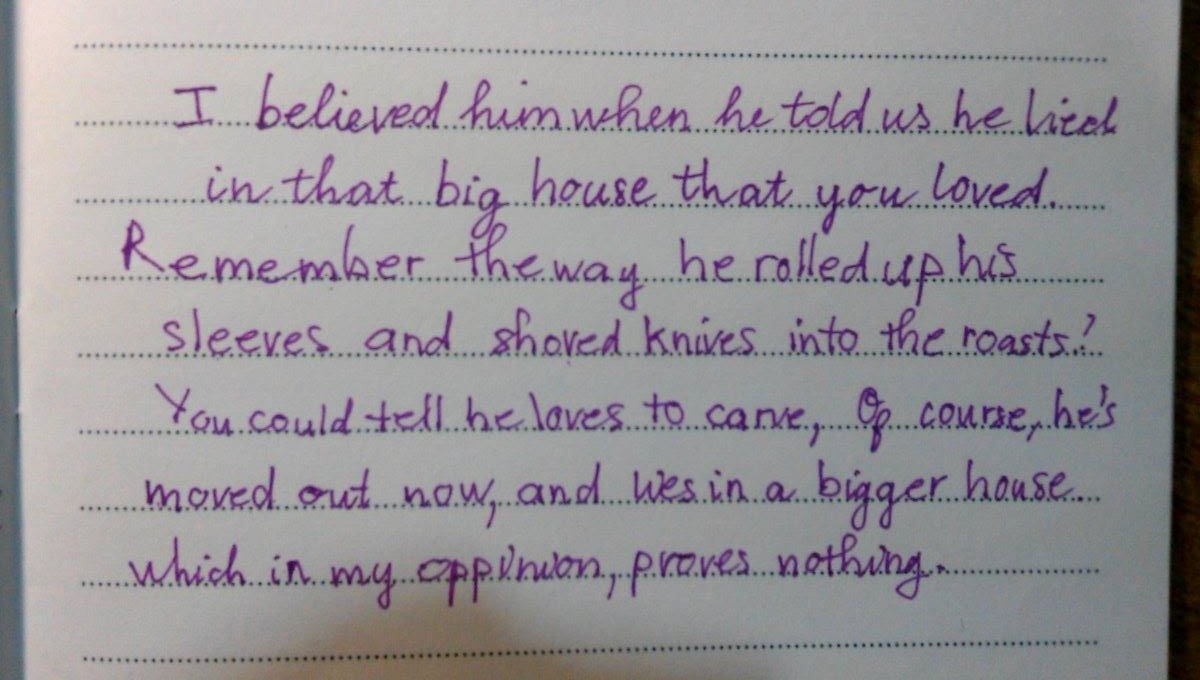 I believed him when he told us he lied
in that big house that you loved.
Remember the way he rolled up his
sleeves and shoved knives into the roasts?
You could tell he loves to carve, Of course, he's
moved out now, and lies in a bigger house
which in my oppinion, proves nothing.